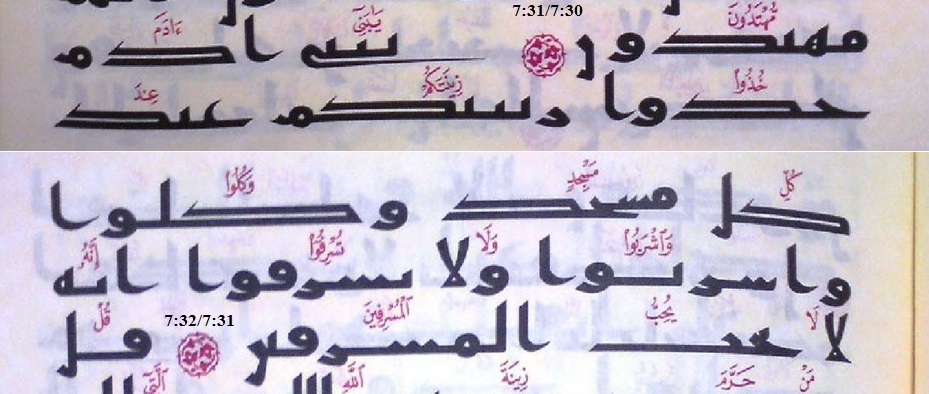 7:31/7:30
مُّهْتَدُونَ يَٰبَنِىٓ ءَادَمَ
مهتدور يبنى ادم
خُذُوا۟ زِينَتَكُمْ عِندَ
حدوا رىىكم عىد
كُلِّ مَسْجِدٍ وَكُلُوا۟
كل مسحد وكلوا
وَٱشْرَبُوا۟ وَلَا تُسْرِفُوٓا۟ إِنَّهُۥ
واسربوا ولا ىسرفوا انه
لَا يُحِبُّ ٱلْمُسْرِفِينَ قُلْ
7:32/7:31
لا ىحب المسرفىں فل
مَنْ حَرَّمَ زِينَةَ ٱللَّهِ ٱلَّتِىٓ